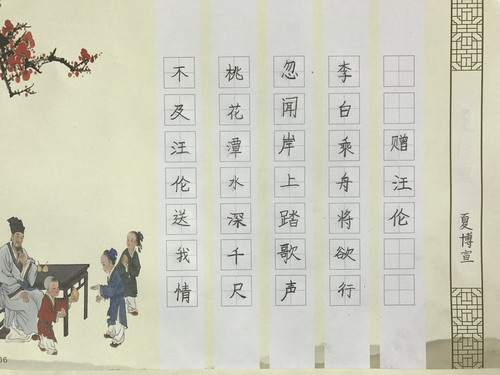 赠汪伦
李白乘舟将欲行
忽闻岸上踏歌声
桃花潭水深千尺
不及汪伦送我情
夏博宣
06